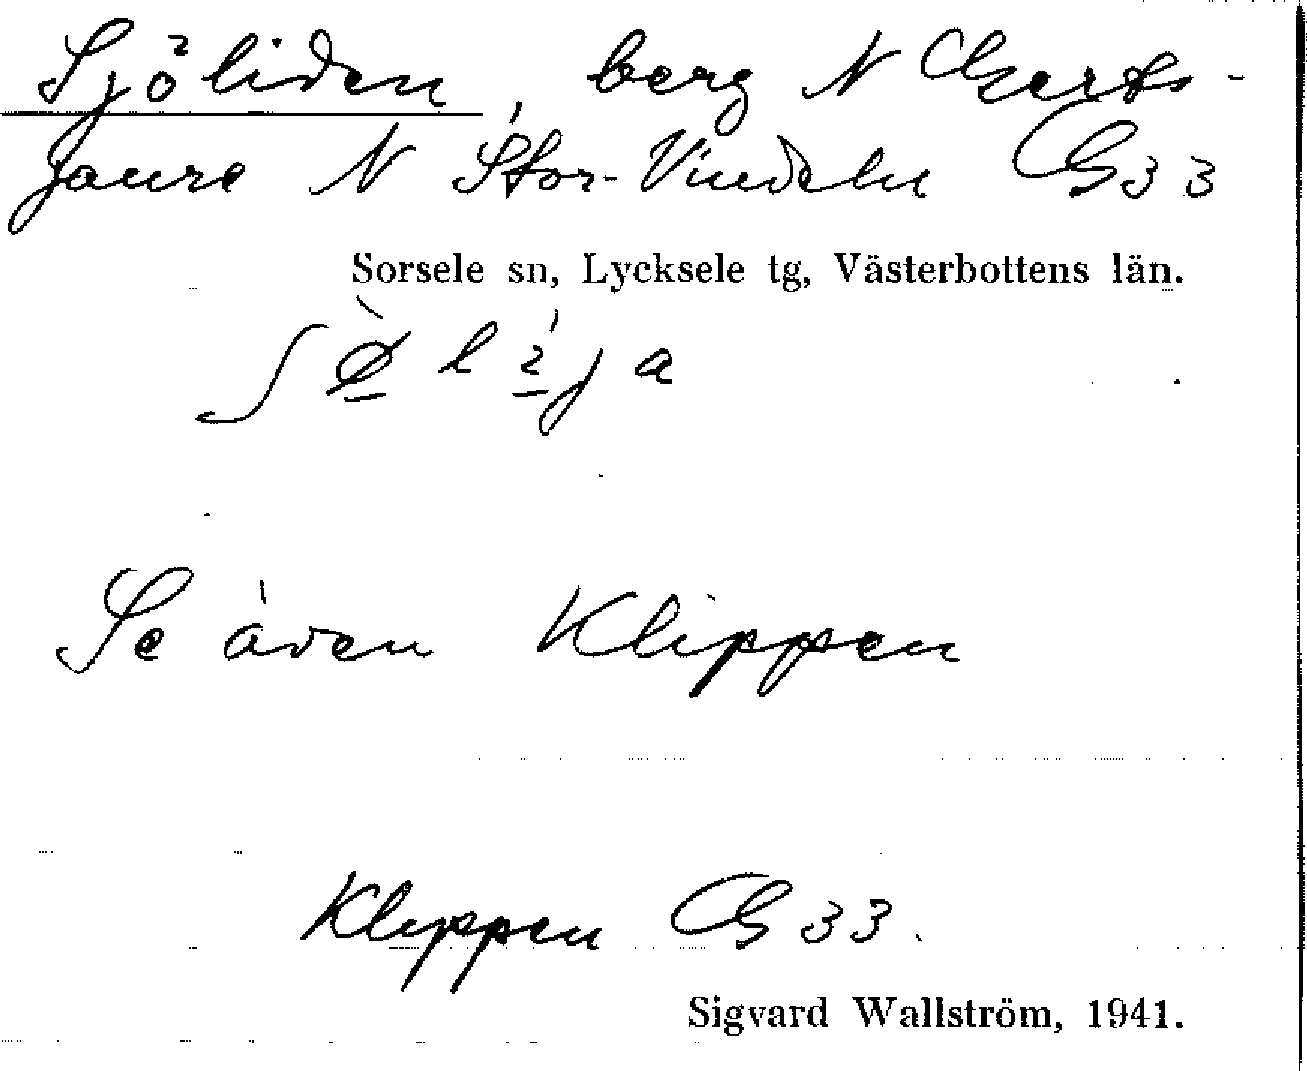 Sjöliden, berg N Gerts-
jaure N Stor-Vindeln G 33
Sorsele sn, Lycksele tg, Västerbottens län.
Se även Klippen
Klippen G 33.
Sigvard Wallström, 1941.